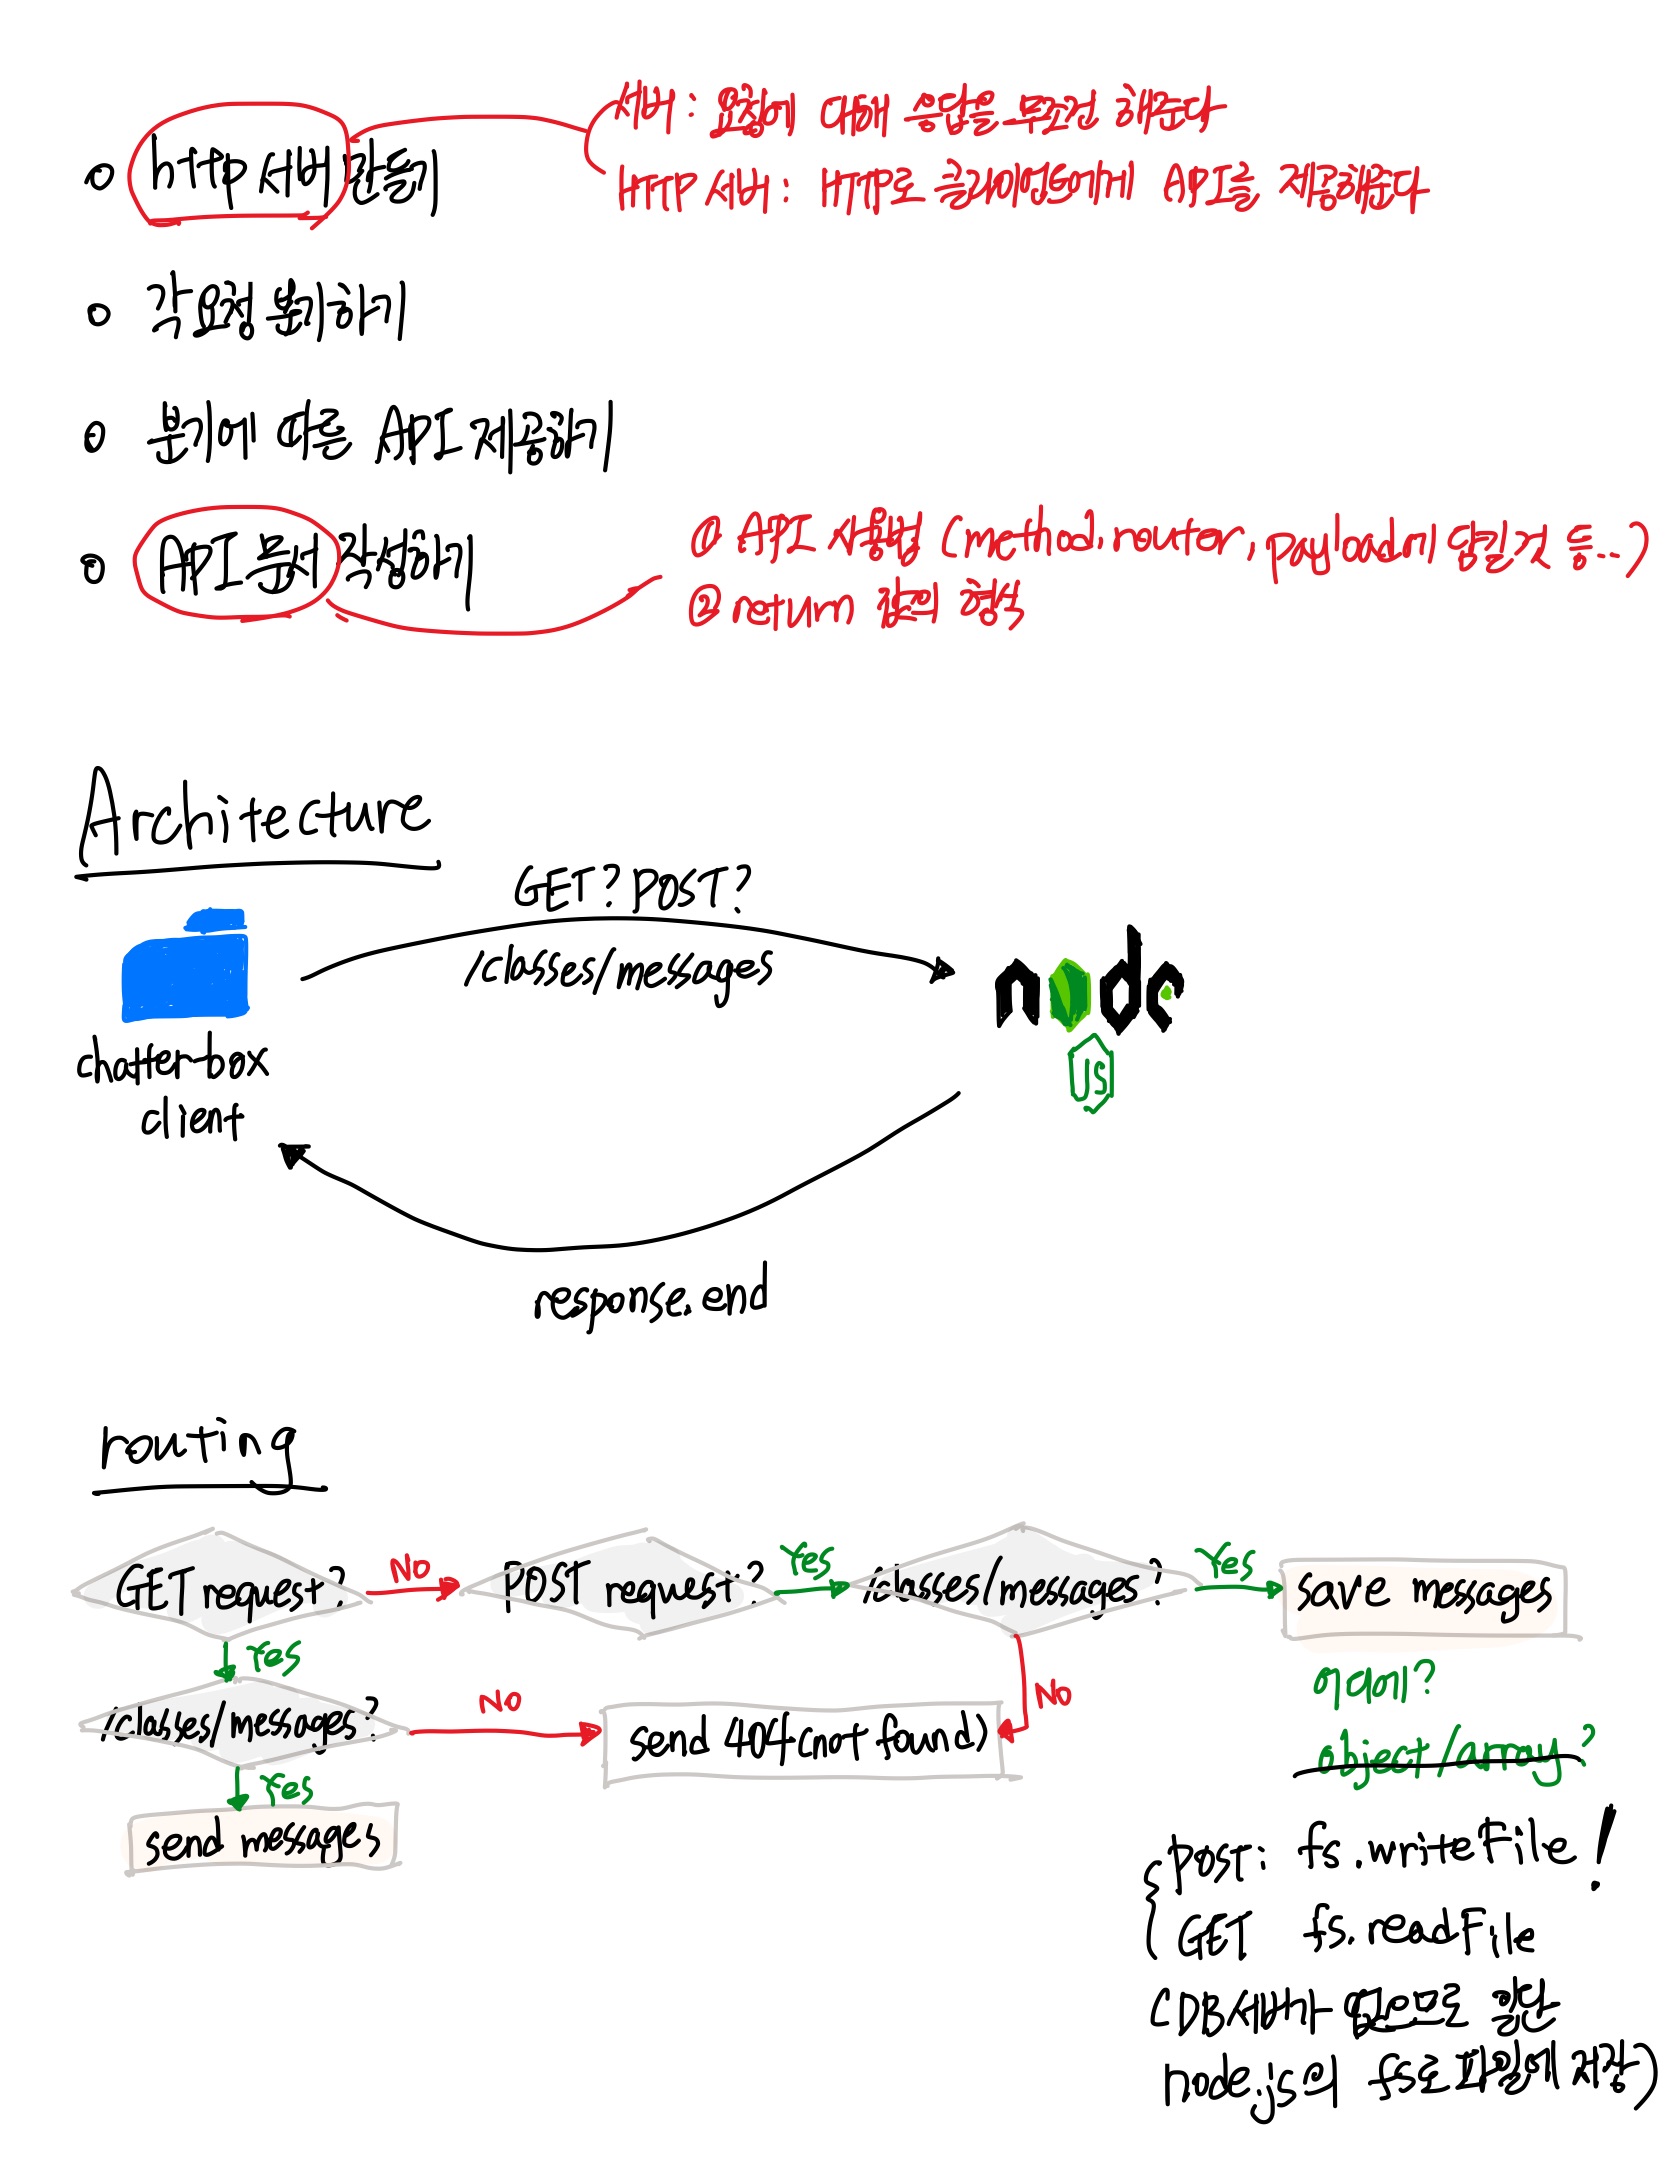 http 서버 만들기
서버 : 요청에 대해 응답을 무조건 해준다
HTTP 서버 : HTTP로 클라이언트에게 API를 제공해준다
각 요청 분기하기
분기에 따른 API 제공하기
API 문서 작성하기
① API 사용법 (method, router, payload에 담길 것 등...)
② return 값의 형식
Architecture
GET? POST?
/classes/messages
chatter-box
client
node
JS
response.end
routing
GET request?
No
POST request?
Yes
/classes/messages?
Yes
save messages
Yes
/classes/messages?
No
send 404(not found)
No
Yes
send messages
어디에?
object/array?
POST: fs.writeFile!
GET fs.readFile
(DB서버가 없으므로 일단
node.js의 fs로 파일에 저장)